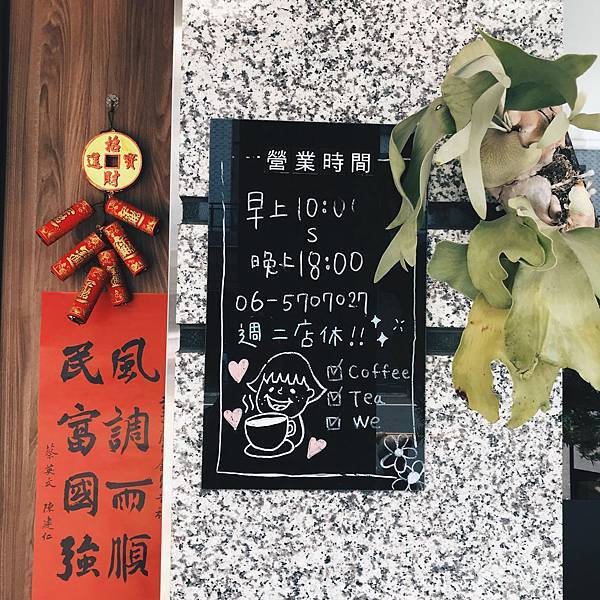 招財進寶
風調而順
民富國強
蔡英文 陳建仁
營業時間
早上10:0
S
晚上18:00
06-5707027
週二店休!!
Coffee
Tea
We